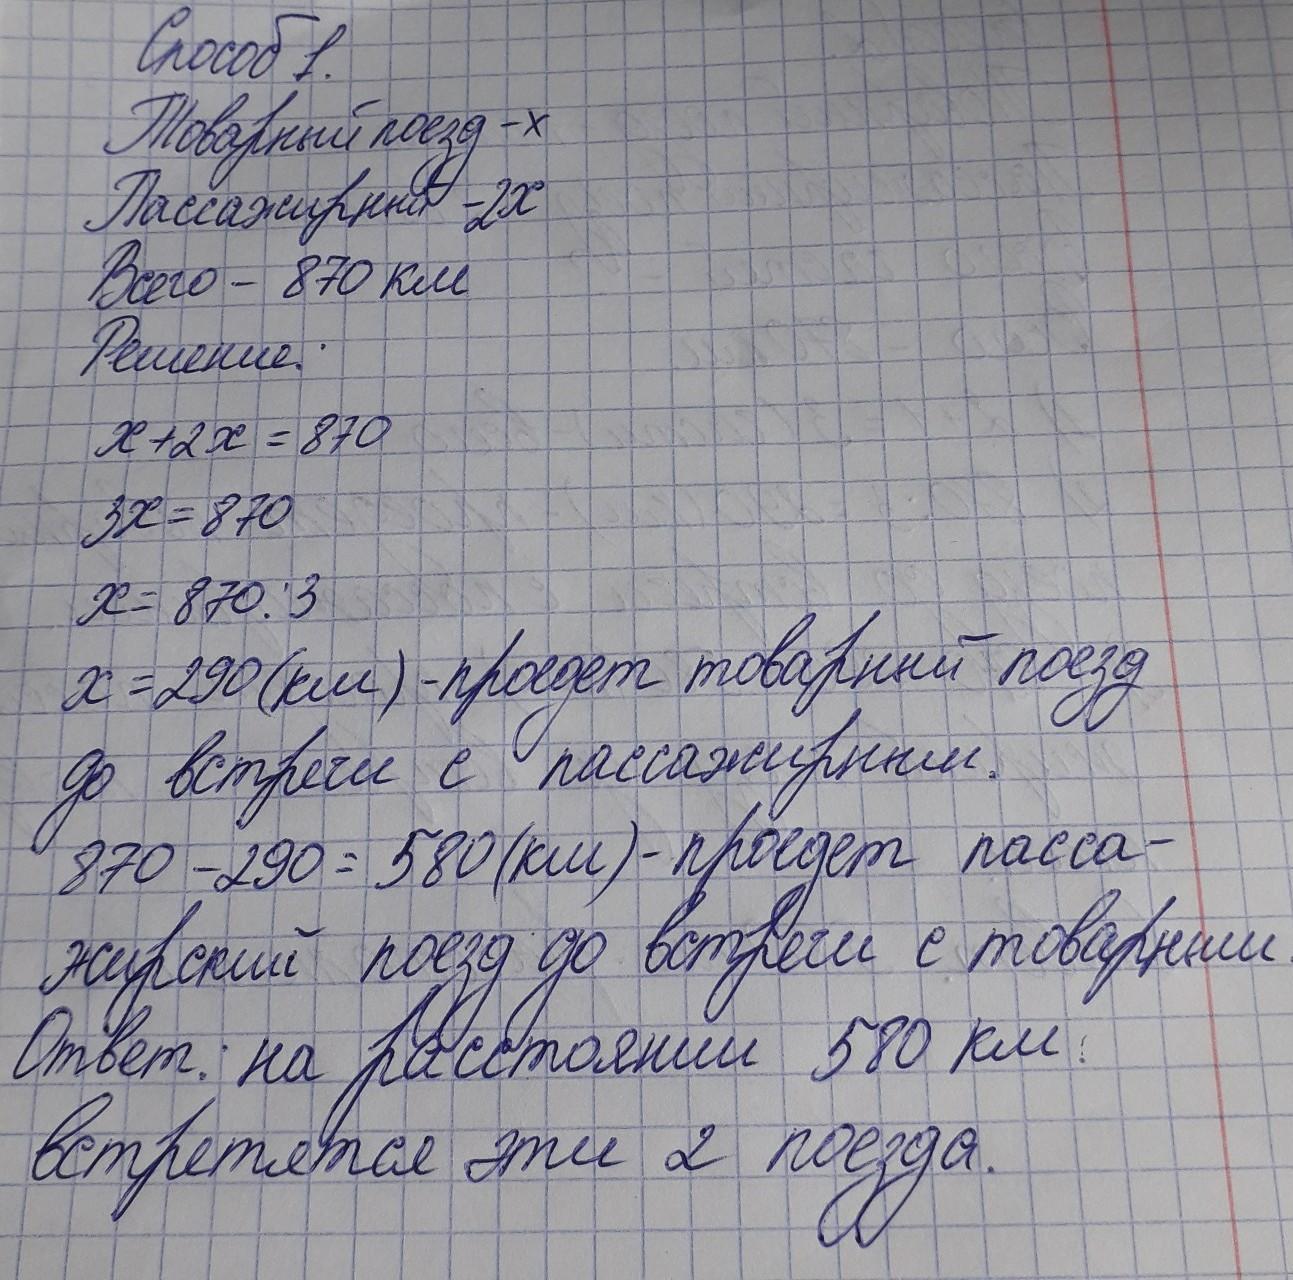 Способ 1.
Товарный поезд - х
Пассажирный - 2х
Всего - 870 км
Решение:
х + 2х = 870
3х = 870
х = 870 : 3
х = 290 (км) - проедет товарный поезд
до встречи с пассажирным.
870 - 290 = 580 (км) - проедет пасса-
жирский поезд до встречи с товарным.
Ответ: на расстоянии 580 км
встретятся эти 2 поезда.